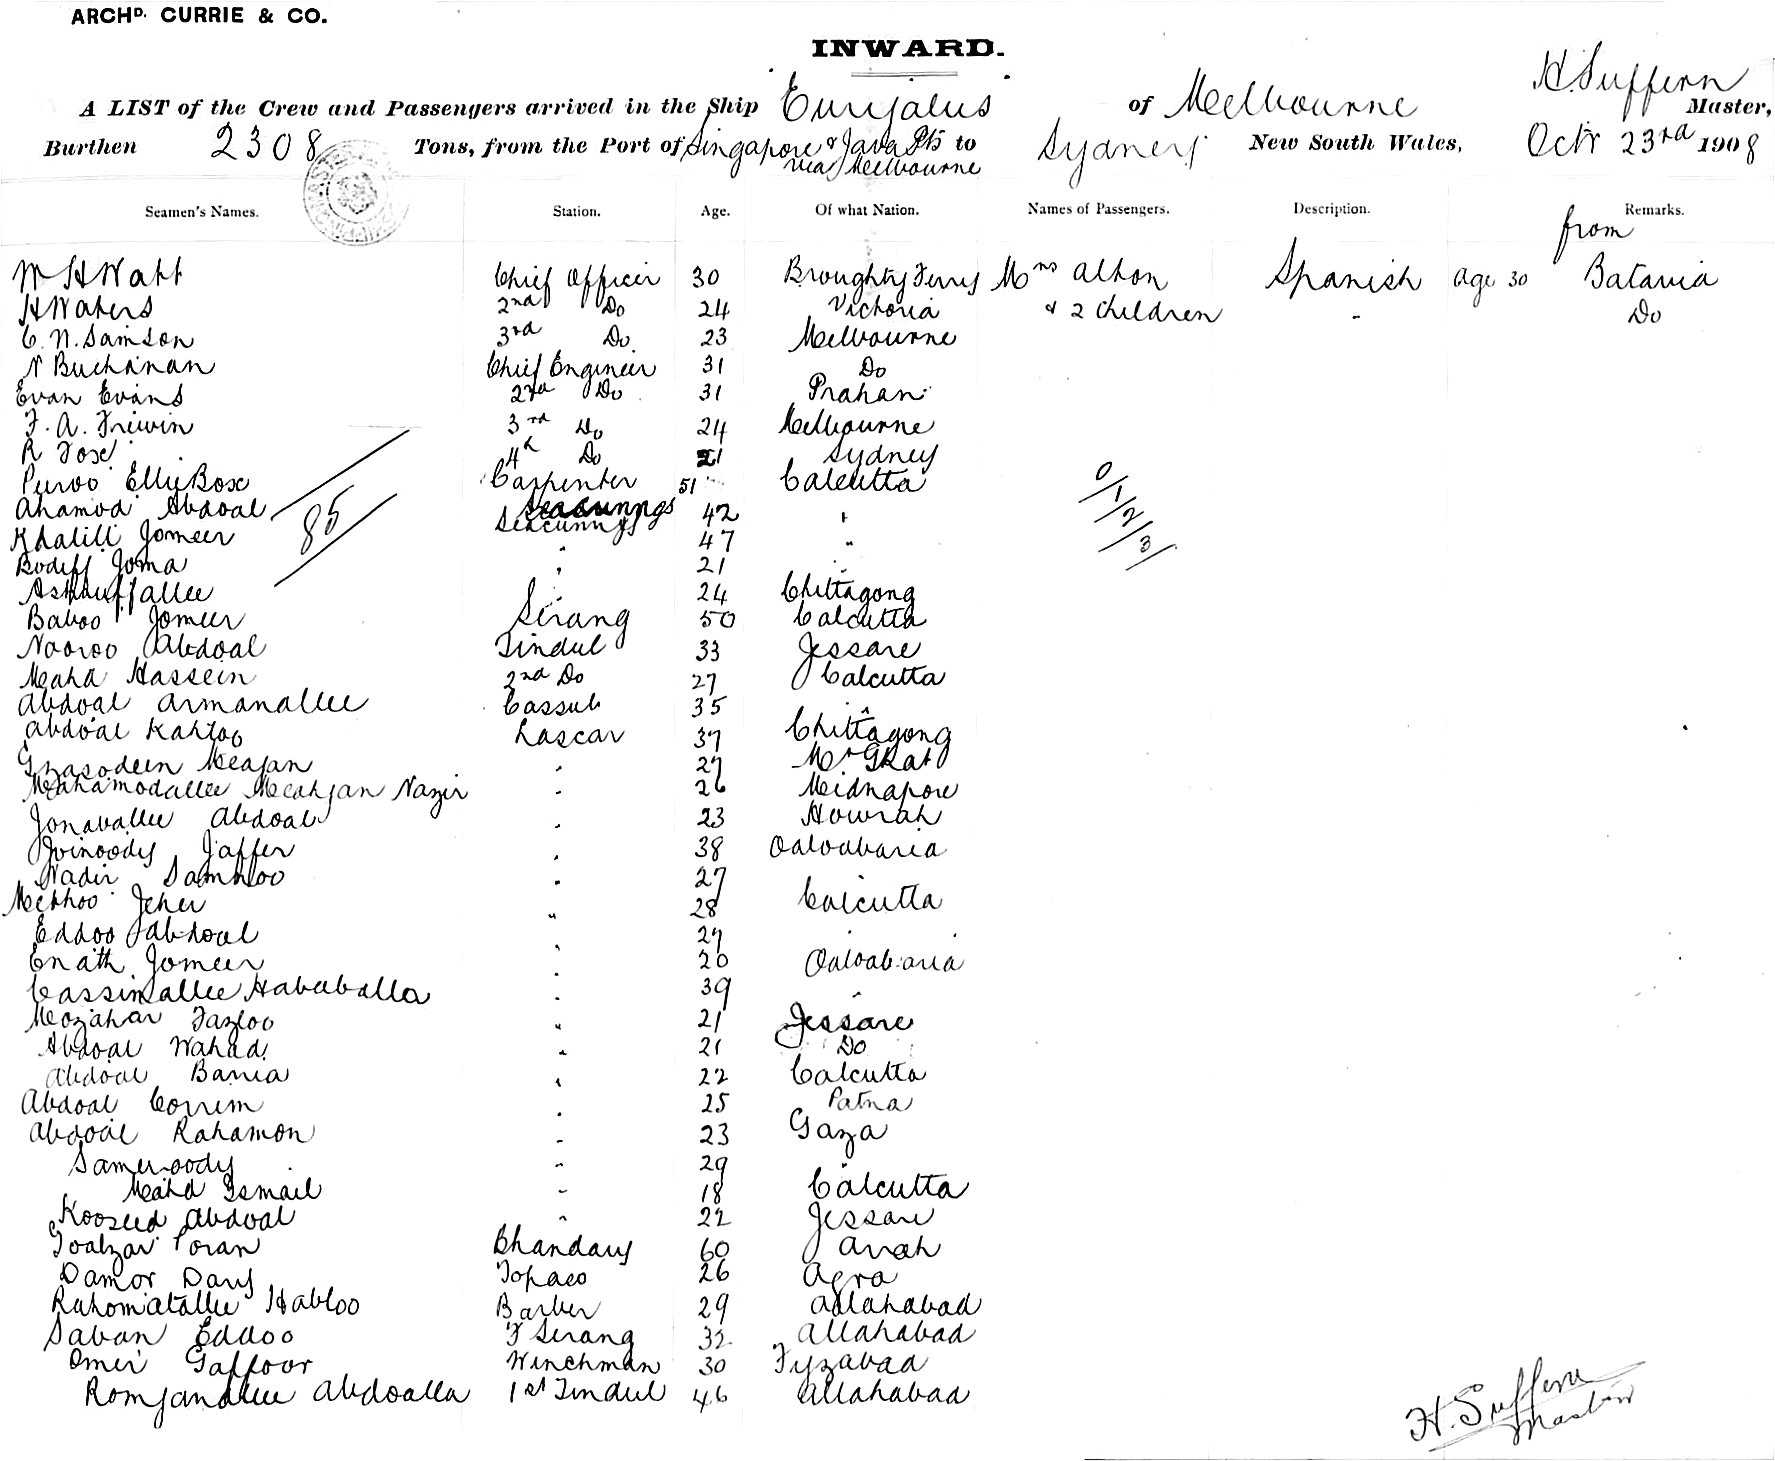 ARCHD. CURRIE & CO.
INWARD.
H. Suffern
A LIST of the Crew and Passengers arrived in the Ship Euryalus of Melbourne Master,
Burthen 2308 Tons, from the Port of Singapore & Java Pts to Sydney New South Wales, Octr 23rd 1908
via Melbourne
Seamen's Names. Station. Age. Of what Nation. Names of Passengers. Description. Remarks.
from
W H Watt Chief Officer 30 Broughty Ferry Mrs Alton Spanish Age 30 Batavia
H Waters 2nd Do 24 Victoria & 2 Children " Do
C. N. Samson 3rd Do 23 Melbourne
N Buchanan Chief Engineer 31 Do
Evan Evans 2nd Do 31 Prahan
F. A. Friwin 3rd Do 24 Melbourne
R Fox 4th Do 21 Sydney
Purvo Ellie Box Carpenter 51 Calcutta
Ahamod Abdoal Seacunnys 42 "
85
0/1/2/3/
Khalill Jomeer " 47 "
Bodiff Joma " 21 "
Ashruffallee " 24 Chittagong
Baboo Jomeer Serang 50 Calcutta
Nooroo Abdoal Tindul 33 Jessare
Mahd Hassein 2nd Do 27 Calcutta
Abdoal Armanallee Cassub 35 "
Abdoal Kahloo Lascar 37 Chittagong
Gyasodeen Meajan " 27 Mr Ghat
Mahamodallee Meahjan Nazir " 26 Midnapore
Jonaballee Abdoal " 23 Howrah
Joinoody Jaffer " 38 Oaloabaria
Nadir Samhloo " 27
Mekhoo Jeher " 28 Calcutta
Eddoo Abdoal " 27 "
Enath Jomeer " 20 Oaloabaria
Cassimallee Hababalla " 39 "
Mozahar Fazloo " 21 Jessare
Abdoal Wahad " 21 Do
Abdoal Baria " 22 Calcutta
Abdoal Corrim " 25 Patna
Abdoal Rahamon " 23 Gaza
Sameroody " 29 "
Mahd Ismail " 18 Calcutta
Koozeed Abdoal " 22 Jessare
Goalzar Poran Bhandary 60 Arrah
Damor Dary Topaco 26 Agra
Rahomatallee Habloo Barber 29 Allahabad
Saban Eddoo F Serang 32 Allahabad
Omer Gaffoor Winchman 30 Fyzabad
Romjanallee Abdoalla 1st Tindul 46 Allahabad
H. Suffern
Master